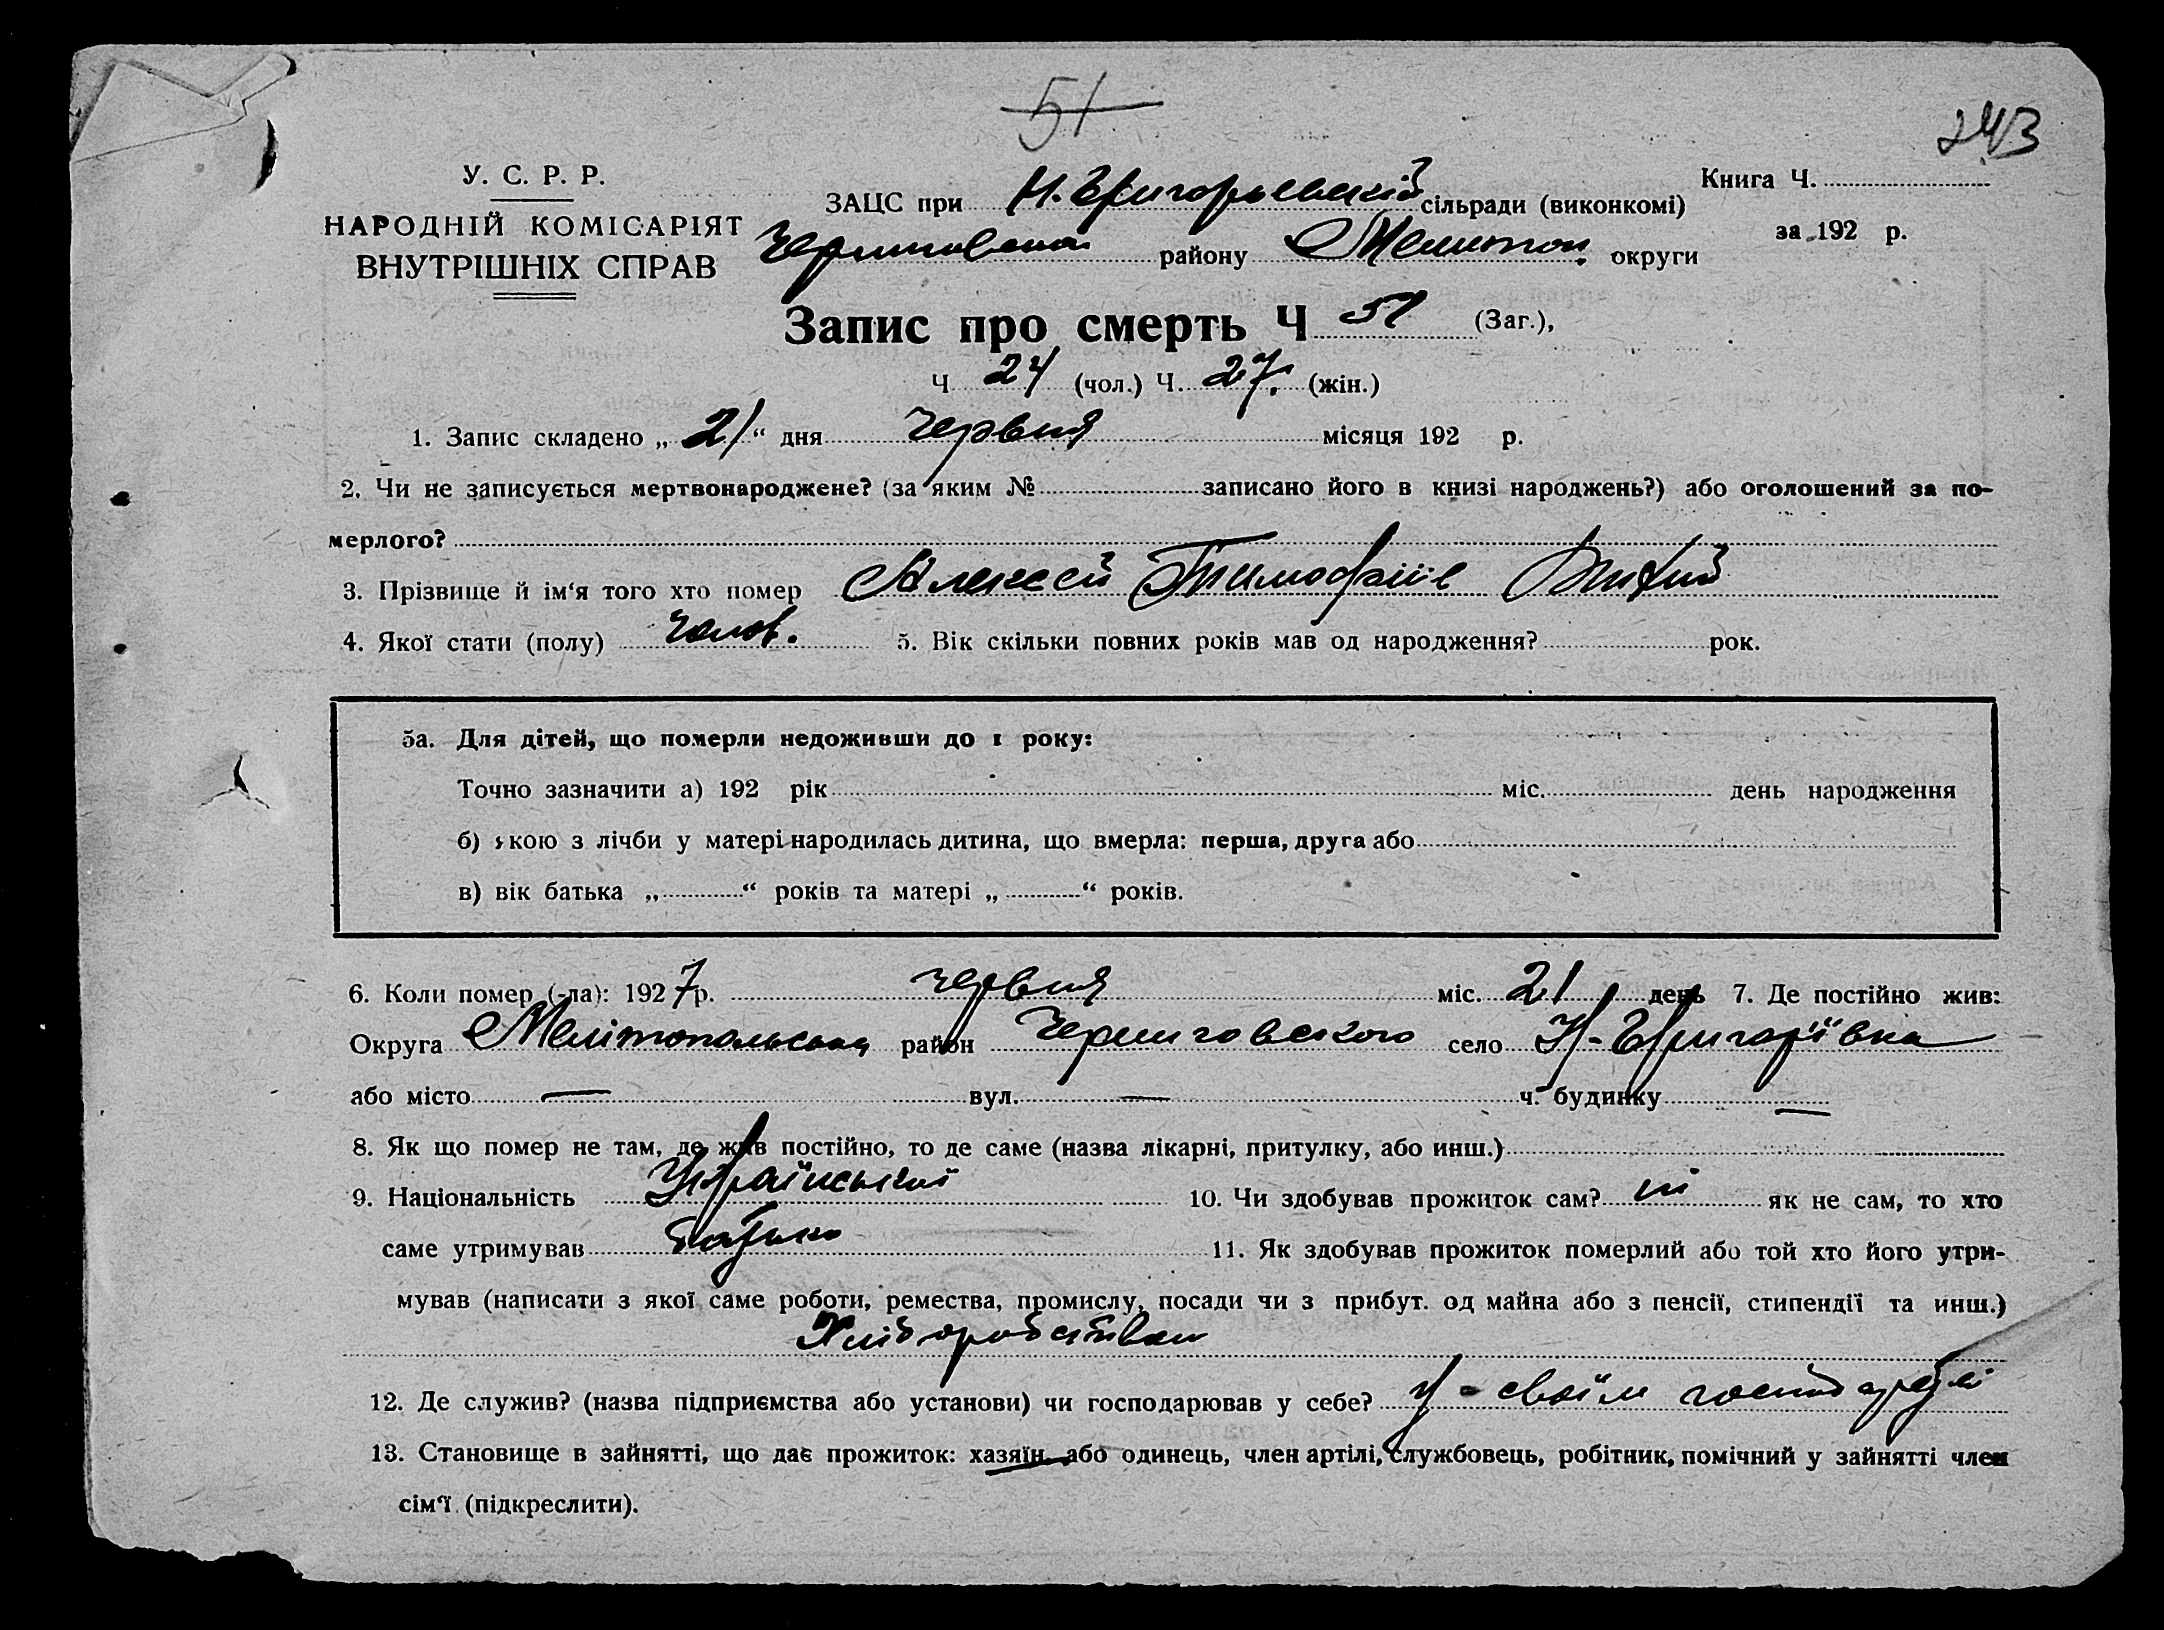 51
243
У. С. Р. Р.
НАРОДНІЙ КОМІСАРІЯТ
ВНУТРІШНІХ СПРАВ
ЗАЦС при Н. Григорьевскій сільради (виконкомі)
району Мелитоп. округи
Книга Ч.
за 192 р.
Запис про смерть Ч 51 (Заг.),
Ч 24 (чол.) Ч. 27. (жін.)
1. Запис складено „ 21 “ дня Червня місяця 192 р.
2. Чи не записується мертвонароджене? (за яким № записано його в книзі народжень?) або оголошений за по-
мерлого?
3. Прізвище й ім‘я того хто помер Алексей
4. Якої стати (полу) Чолов. 5. Вік скільки повних років мав од народження? рок.
5а. Для дітей, що померли недоживши до 1 року:
Точно зазначити а) 192 рік міс. день народження
б) якою з лічби у матері народилась дитина, що вмерла: перша, друга або
в) вік батька „ “ років та матері „ “ років.
6. Коли помер (-ла): 1927 р. червня міс. 21 день 7. Де постійно жив:
Округа Мелітопольська район Черниговського село Н-Григорїівка
або місто — вул. — ч. будинку —
8. Як що помер не там, де жив постійно, то де саме (назва лікарні, притулку, або инш.)
9. Національність Української 10. Чи здобував прожиток сам? ні як не сам, то хто
саме утримував батько 11. Як здобував прожиток померлий або той хто його утри-
мував (написати з якої саме роботи, ремества, промислу, посади чи з прибут. од майна або з пенсії, стипендії та инш.)
Хліборобством
12. Де служив? (назва підприємства або установи) чи господарював у себе? У своїм
13. Становище в зайнятті, що дає прожиток: хазяїн або одинець, член артілі, службовець, робітник, помічний у зайнятті член
сім‘ї (підкреслити).